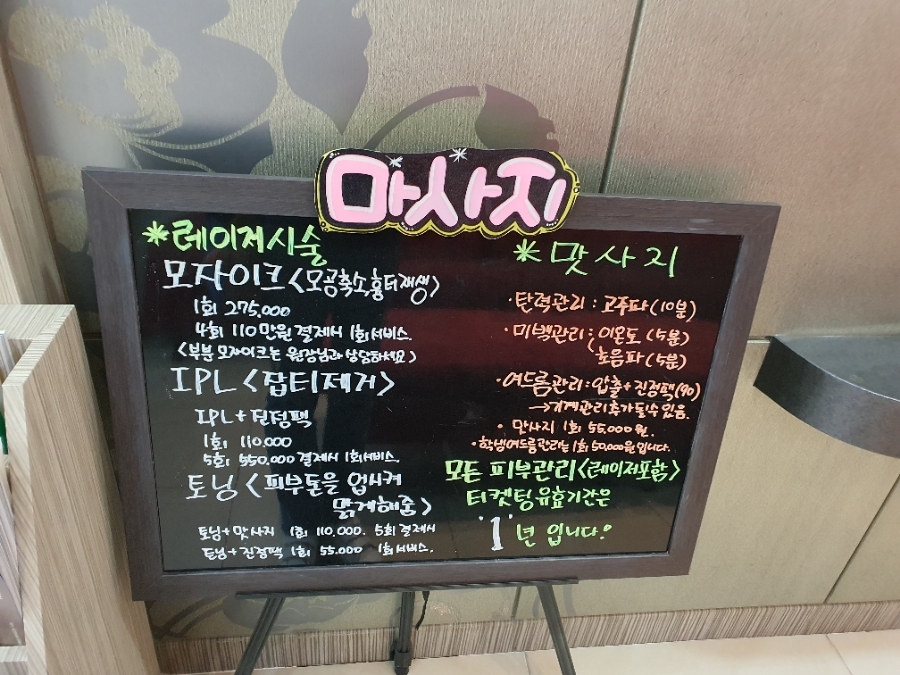 마사지
*레이저시술
모자이크<모공축소,흉터재생>
1회 275,000
4회 110만원 결제시 1회서비스.
<부분모자이크는 원장님과 상담하세요>
IPL<잡티제거>
IPL+진정팩
1회 110,000
5회 550,000 결제시 1회서비스.
토닝<피부톤을 업시켜
맑게해줌>
토닝+맛사지 1회 110,000. 5회결제시
토닝+진정팩 1회 55,000 1회서비스.
*맛사지
·탄력관리: 고주파(10분)
·미백관리: 이온도(5분)
초음파(5분)
·여드름관리: 압출+진정팩(90)
→기계관리추가될수있음.
·맛사지 1회 55,000원.
·학생여드름관리는 1회 50,000원입니다.
모든 피부관리<레이저포함>
티켓팅유효기간은
'1'년 입니다.